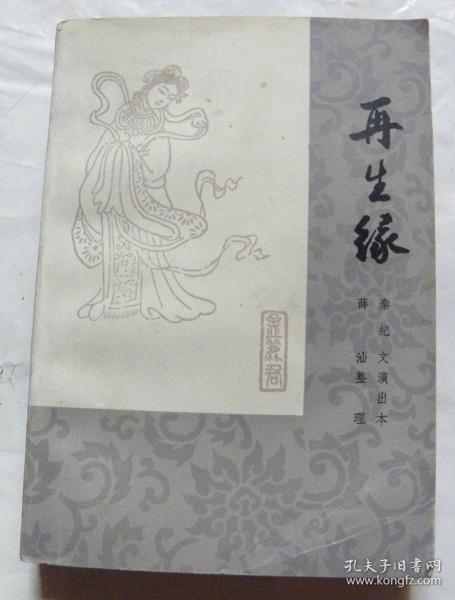 再生缘
秦纪文演出本
薛汕整理
孟丽君
孔夫子旧书网
www.kongfz.com